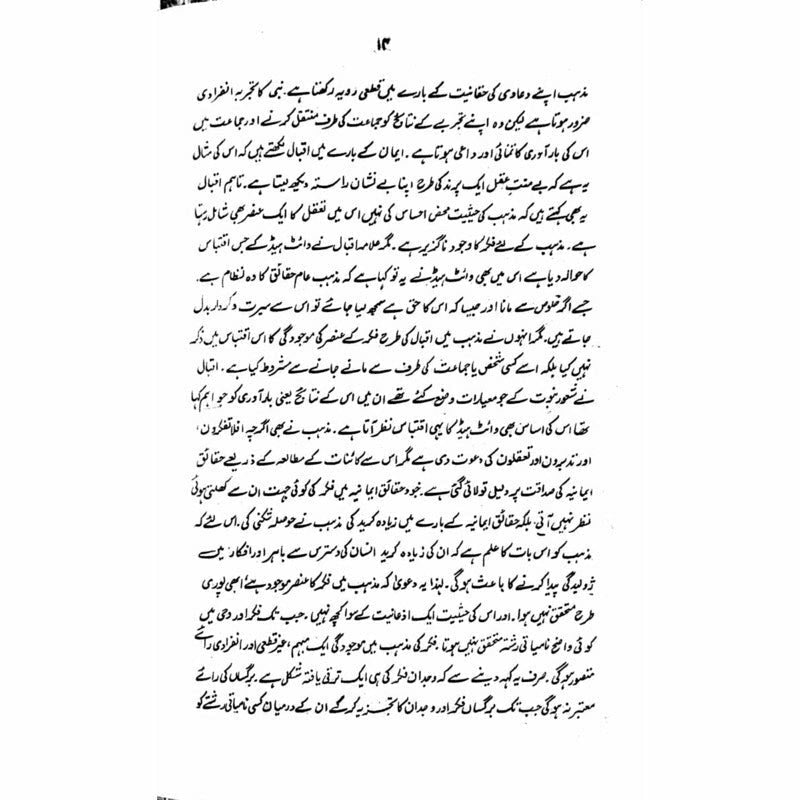 ۱۴
مذہب اپنے دعاوی کی حقانیت کے بارے میں قطعی رویہ رکھتا ہے۔ نبی کا تجربہ انفرادی
ضرور ہوتا ہے لیکن وہ اپنے تجربے کے نتائج کو جماعت کی طرف منتقل کرنے اور جماعت میں
اس کی بار آوری کا تمنائی اور داعی ہوتا ہے۔ ایمان کے بارے میں اقبال لکھتے ہیں کہ اس کی مثال
یہ ہے کہ بے منتِ عقل ایک پرند کی طرح اپنا بے نشان راستہ دیکھ لیتا ہے۔ تاہم اقبال
یہ بھی کہتے ہیں کہ مذہب کی حیثیت محض احساس کی نہیں اس میں تعقل کا ایک عنصر بھی شامل رہتا
ہے۔ مذہب کے لئے فکر کا وجود ناگزیر ہے۔ مگر علامہ اقبال نے وائٹ ہیڈ کے جس اقتباس
کا حوالہ دیا ہے اس میں بھی وائٹ ہیڈ نے یہ تو کہا ہے کہ مذہب عام حقائق کا وہ نظام ہے
جسے اگر خلوص سے مانا اور جیسا کہ اس کا حق ہے سمجھ لیا جائے تو اس سے سیرت و کردار بدل
جاتے ہیں۔ مگر انہوں نے مذہب میں اقبال کی طرح فکر کے عنصر کی موجودگی کا اس اقتباس میں ذکر
نہیں کیا بلکہ اسے کسی شخص یا جماعت کی طرف سے مانے جانے سے مشروط کیا ہے۔ اقبال
نے شعور نبوت کے جو معیارات وضع کئے تھے ان میں اس کے نتائج یعنی بار آوری کو جو اہم کہا
تھا اس کی اساس بھی وائٹ ہیڈ کا یہی اقتباس نظر آتا ہے۔ مذہب نے بھی اگرچہ افلا تفکرون،
اور تدبرون اور تعقلون کی دعوت دی ہے مگر اس سے کائنات کے مطالعہ کے ذریعے حقائق
ایمانیہ کی صداقت پر دلیل تو لائی گئی ہے۔ خود حقائق ایمانیہ میں فکر کی کوئی جہت ان سے کھلتی ہوئی
نظر نہیں آتی بلکہ حقائق ایمانیہ کے بارے میں زیادہ کرید کی مذہب نے حوصلہ شکنی کی۔ اس لئے کہ
مذہب کو اس بات کا علم ہے کہ ان کی زیادہ کرید انسان کی دسترس سے باہر اور افکار میں
ژولیدگی پیدا کرنے کا باعث ہوگی۔ لہٰذا یہ دعویٰ کہ مذہب میں فکر کا عنصر موجود ہے، ابھی پوری
طرح متحقق نہیں ہوا۔ اور اس کی حیثیت ایک اذعانیت کے سوا کچھ نہیں۔ جب تک فکر اور وحی میں
کوئی واضح نامیاتی رشتہ متحقق نہیں ہوتا۔ فکر کی مذہب میں موجودگی ایک مبہم، غیر قطعی اور انفرادی رائے
متصور ہوگی۔ صرف یہ کہہ دینے سے کہ وجدان فکر کی ہی ایک ترقی یافتہ شکل ہے۔ برگساں کی رائے
معتبر نہ ہوگی جب تک برگساں فکر اور وجدان کا تجزیہ کرکے ان کے درمیان کسی نامیاتی رشتے کو